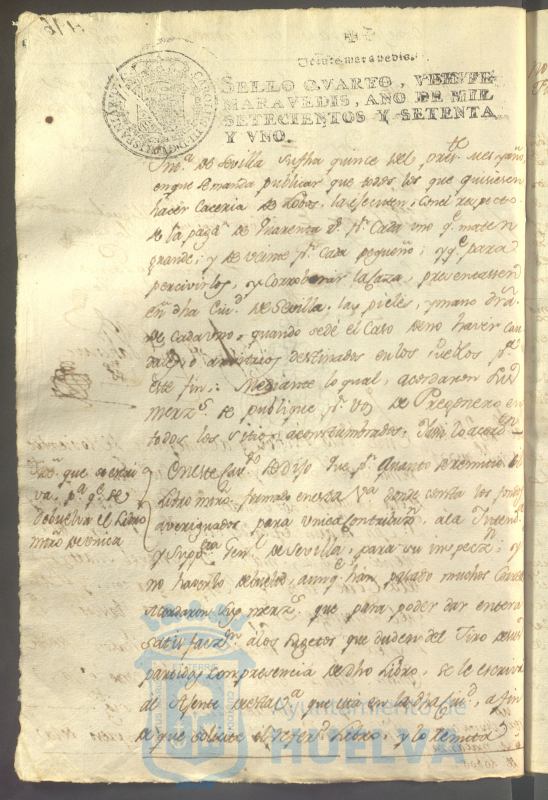 Veinte maravedis.
SELLO QVARTO, VEINTE
MARAVEDIS, AÑO DE MIL
SETECIENTOS Y SETENTA
Y VNO.
de Sevilla su fha quince del press.te mes y año
en que se manda publicar que todos los que quisiesen
hacer Caceria de Lobos, la ejecuten, con el respecto
de la paga de quarenta Rs. pr. Cada uno qe. maten
grande; y de veinte pr. Cada pequeño; y qe. para
percivirlos, y corroborar la Caza, presentassen
en dha Ciud. de Sevilla, las pieles, y mano dra.
de cada uno, quando se dé el Caso de no haver Cau
dales, o arvitrios destinados en los Pueblos pa.
este fin: Mediante lo qual, acordaron sus
merzs. se publique pr. voz de Pregonero en
todos los sitios acostumbrados, Assi lo acord.n
que se escri
va, pa. qe. se
debuelva el Libro
mro. de Vnica
En este Cav.do se dijo que pr. quanto se remitio el
Libro mro. formado en esta Va. donde consta los fondos
averiguados para Vnica Contribuzn. a la Intend.a
y Sup. Gen.l de Sevilla, para su inspeczn. y
no haverlo debuelto, aunqe. han pasado muchos
Acordaron sus merzs. que para poder dar entera
satisfaczn. a los sugetos que duden del Tiro de sus
partidas con presencia de dho Libro, se le escriva
al Agente de esta Va. que está en la dha Ciud. a fin
de que solicite el refer.do Libro, y lo remita
Ayuntamiento de
HUELVA